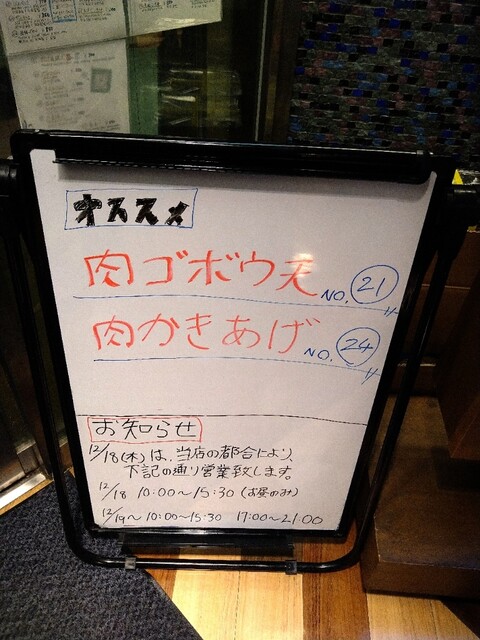 オススメ
肉ゴボウ天 NO. 21
肉かきあげ NO. 24
お知らせ
12/18(木)は、当店の都合により、
下記の通り営業致します。
12/18 10:00～15:30 (お昼のみ)
12/19～ 10:00～15:30 17:00～21:00